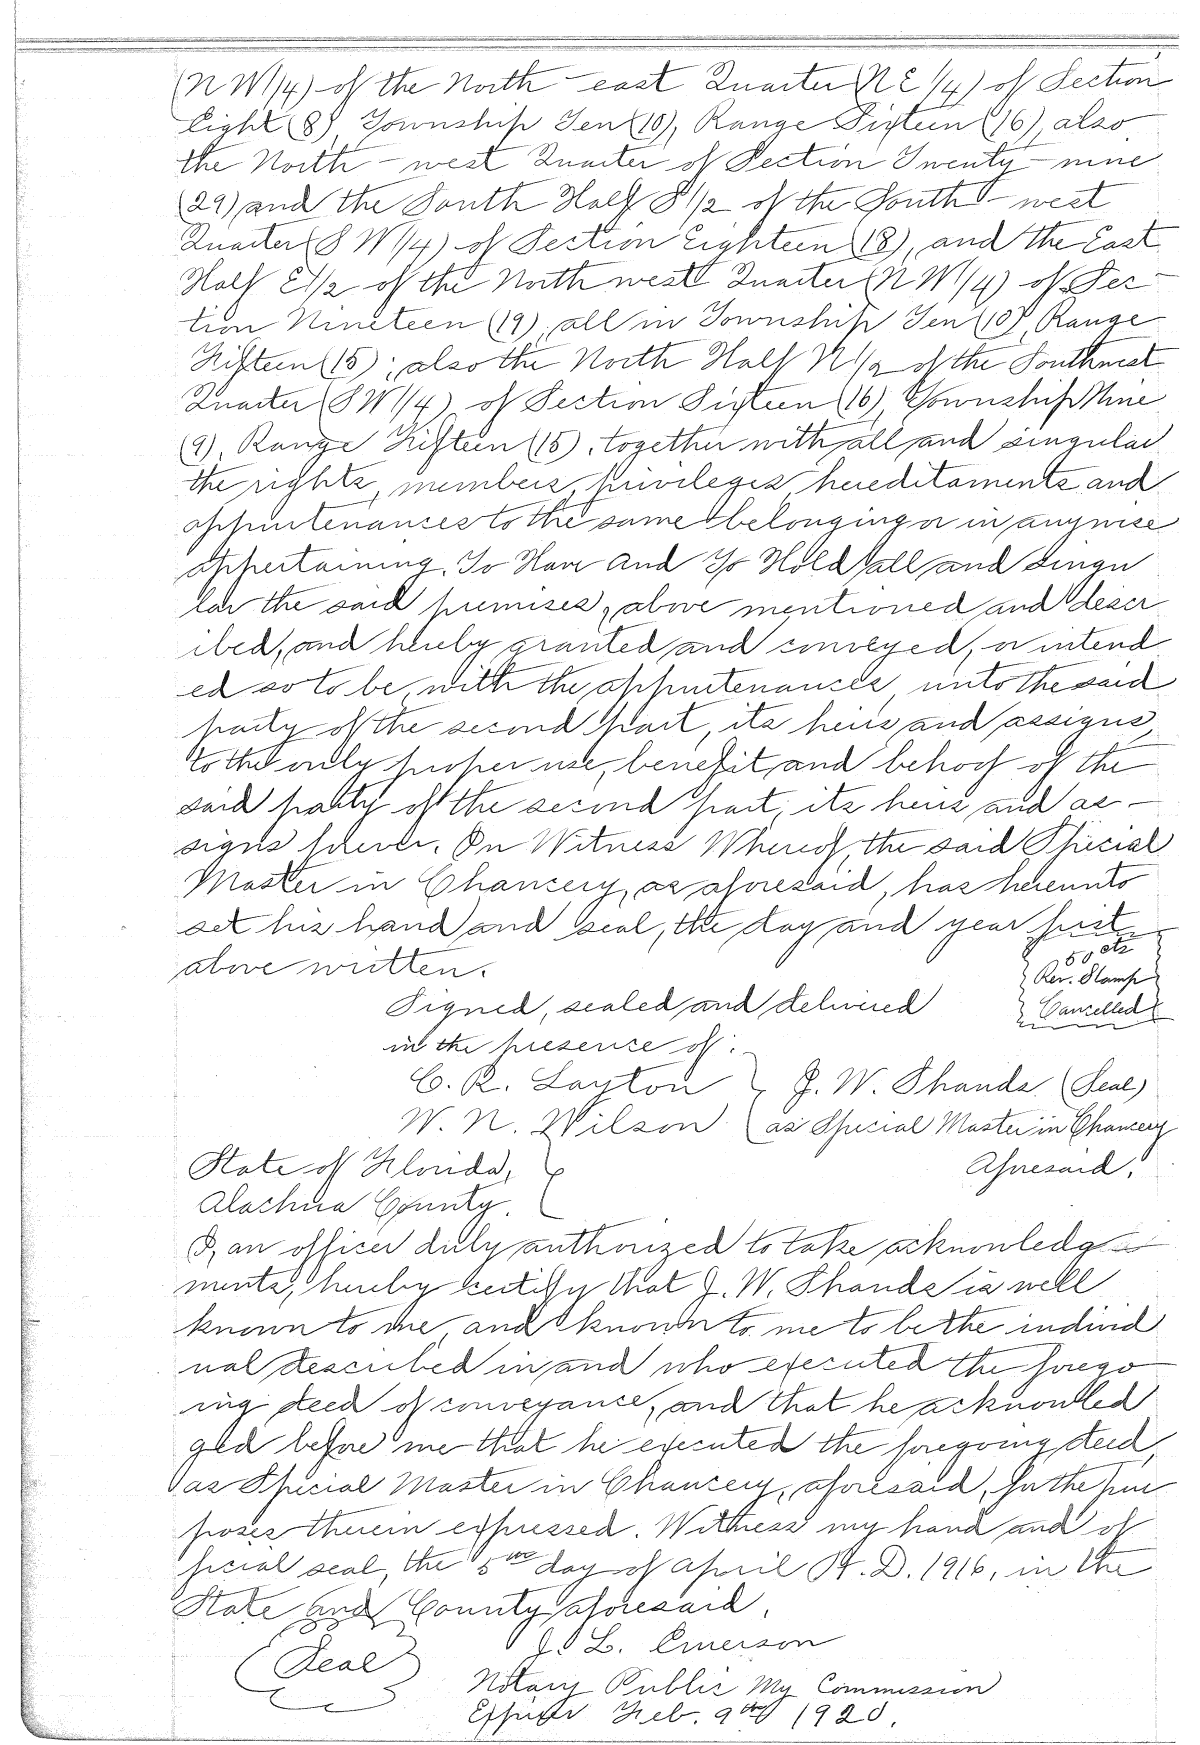 (N W 1/4) of the North-east Quarter (N E 1/4) of Section
Eight (8), Township Ten (10), Range Sixteen (16), also
the North-west Quarter of Section Twenty-nine
(29) and the South Half S 1/2 of the South-west
Quarter (S W 1/4) of Section Eighteen (18), and the East
Half E 1/2 of the North west Quarter (N W 1/4) of Sec-
tion Nineteen (19), all in Township Ten (10), Range
Fifteen (15); also the North Half N 1/2 of the Southwest
Quarter (S W 1/4) of Section Sixteen (16), Township Nine
(9), Range Fifteen (15), together with all and singular
the rights, members, privileges, hereditaments and
appurtenances to the same belonging or in anywise
appertaining. To Have and To Hold all and singu
lar the said premises, above mentioned and descr
ibed, and hereby granted and conveyed, or intend
ed so to be, with the appurtenances, unto the said
party of the second part, its heirs and assigns,
to the only proper use, benefit and behoof of the
said party of the second part, its heirs and as-
signs forever. In Witness Whereof, the said Special
Master in Chancery, as aforesaid, has hereunto
set his hand and seal, the day and year first
above written.
50 cts
Rev. Stamp
Cancelled
Signed, sealed and delivered
in the presence of:
C. R. Layton } J. W. Shands (Seal)
W. N. Wilson (as Special Master in Chancery
Aforesaid.
State of Florida,
Alachua County.
I, an officer duly authorized to take acknowledg
ments, hereby certify that J. W. Shands is well
known to me, and known to me to be the individ
ual described in and who executed the forego
ing deed of conveyance, and that he acknowled
ged before me that he executed the foregoing deed,
as Special Master in Chancery, aforesaid, for the pur
poses therein expressed. Witness my hand and of
ficial seal, the 5th day of April A. D. 1916, in the
State and County aforesaid.
J. L. Emerson
(Seal)
Notary Public My Commission
Expires Feb. 9th 1920.